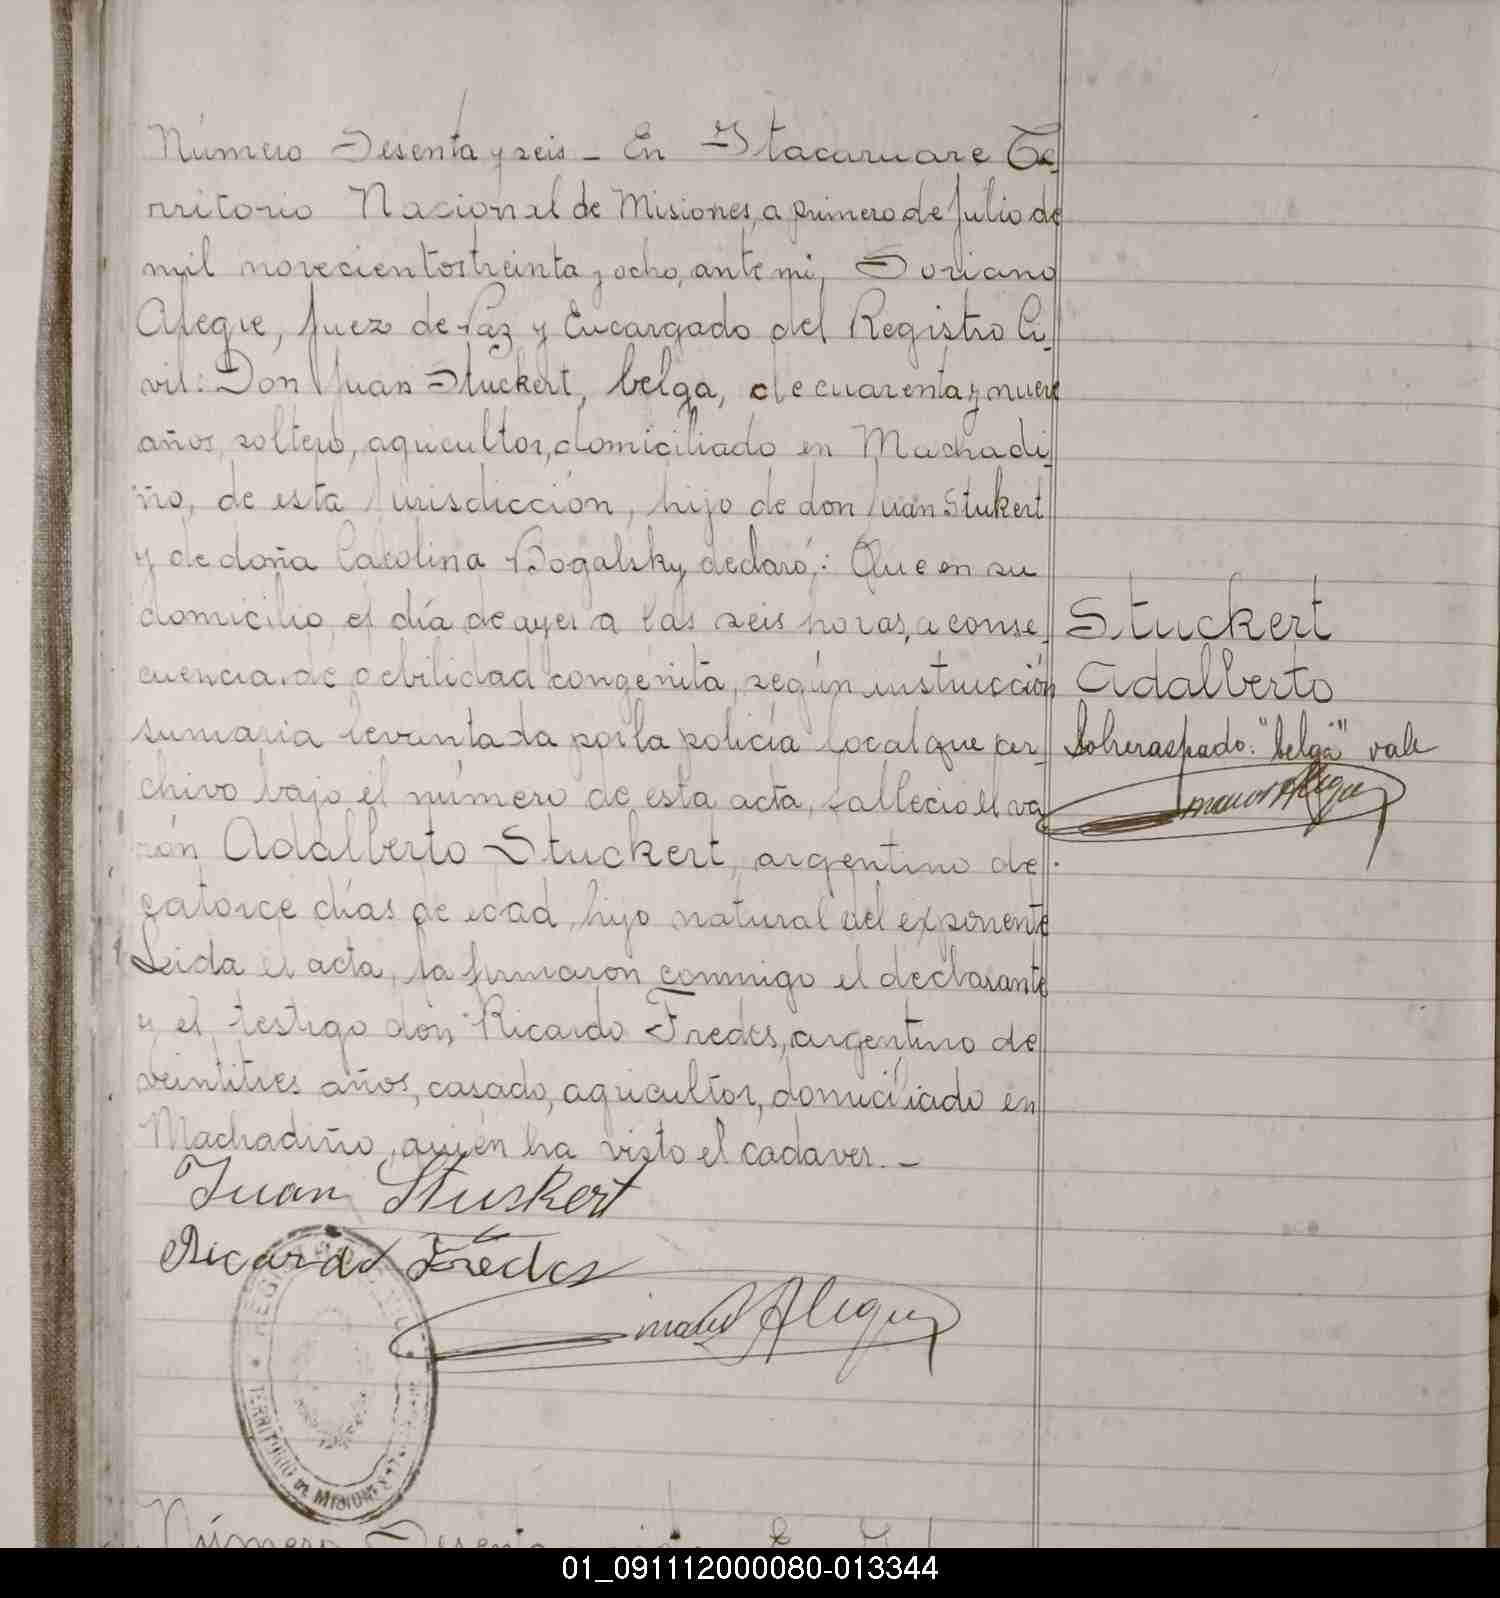 Número Sesenta y seis - En Itacaruare Te-
rritorio Nacional de Misiones, a primero de Julio de
mil novecientos treinta y ocho, ante mi, Soriano
Alegre, Juez de Paz y Encargado del Registro Ci-
vil: Don Juan Stuckert, belga, de cuarenta y nueve
años, soltero, agricultor, domiciliado en Machadi-
ño, de esta Jurisdicción, hijo de don Juan Stukert
y de doña Carolina Bogalsky, declaró,: Que en su
domicilio, el día de ayer a las seis horas, a conse-
cuencia de debilidad congénita, según instrucción
sumaria levantada por la policía local que ar-
chivo bajo el número de esta acta, falleció el va-
rón Adalberto Stuckert, argentino de
catorce días de edad, hijo natural del exponente
Leida el acta, la firmaron conmigo el declarante
y el testigo don Ricardo Fredes, argentino de
veintitres años, casado, agricultor, domiciliado en
Machadiño, quién ha visto el cadaver. -
Stuckert
Adalberto
Sobreraspado: "belga" vale
Alegre
Juan Stuckert
Ricardo Fredes
Alegre
TERRITORIO DE MISIONES
Número Sesenta
01_091112000080-013344